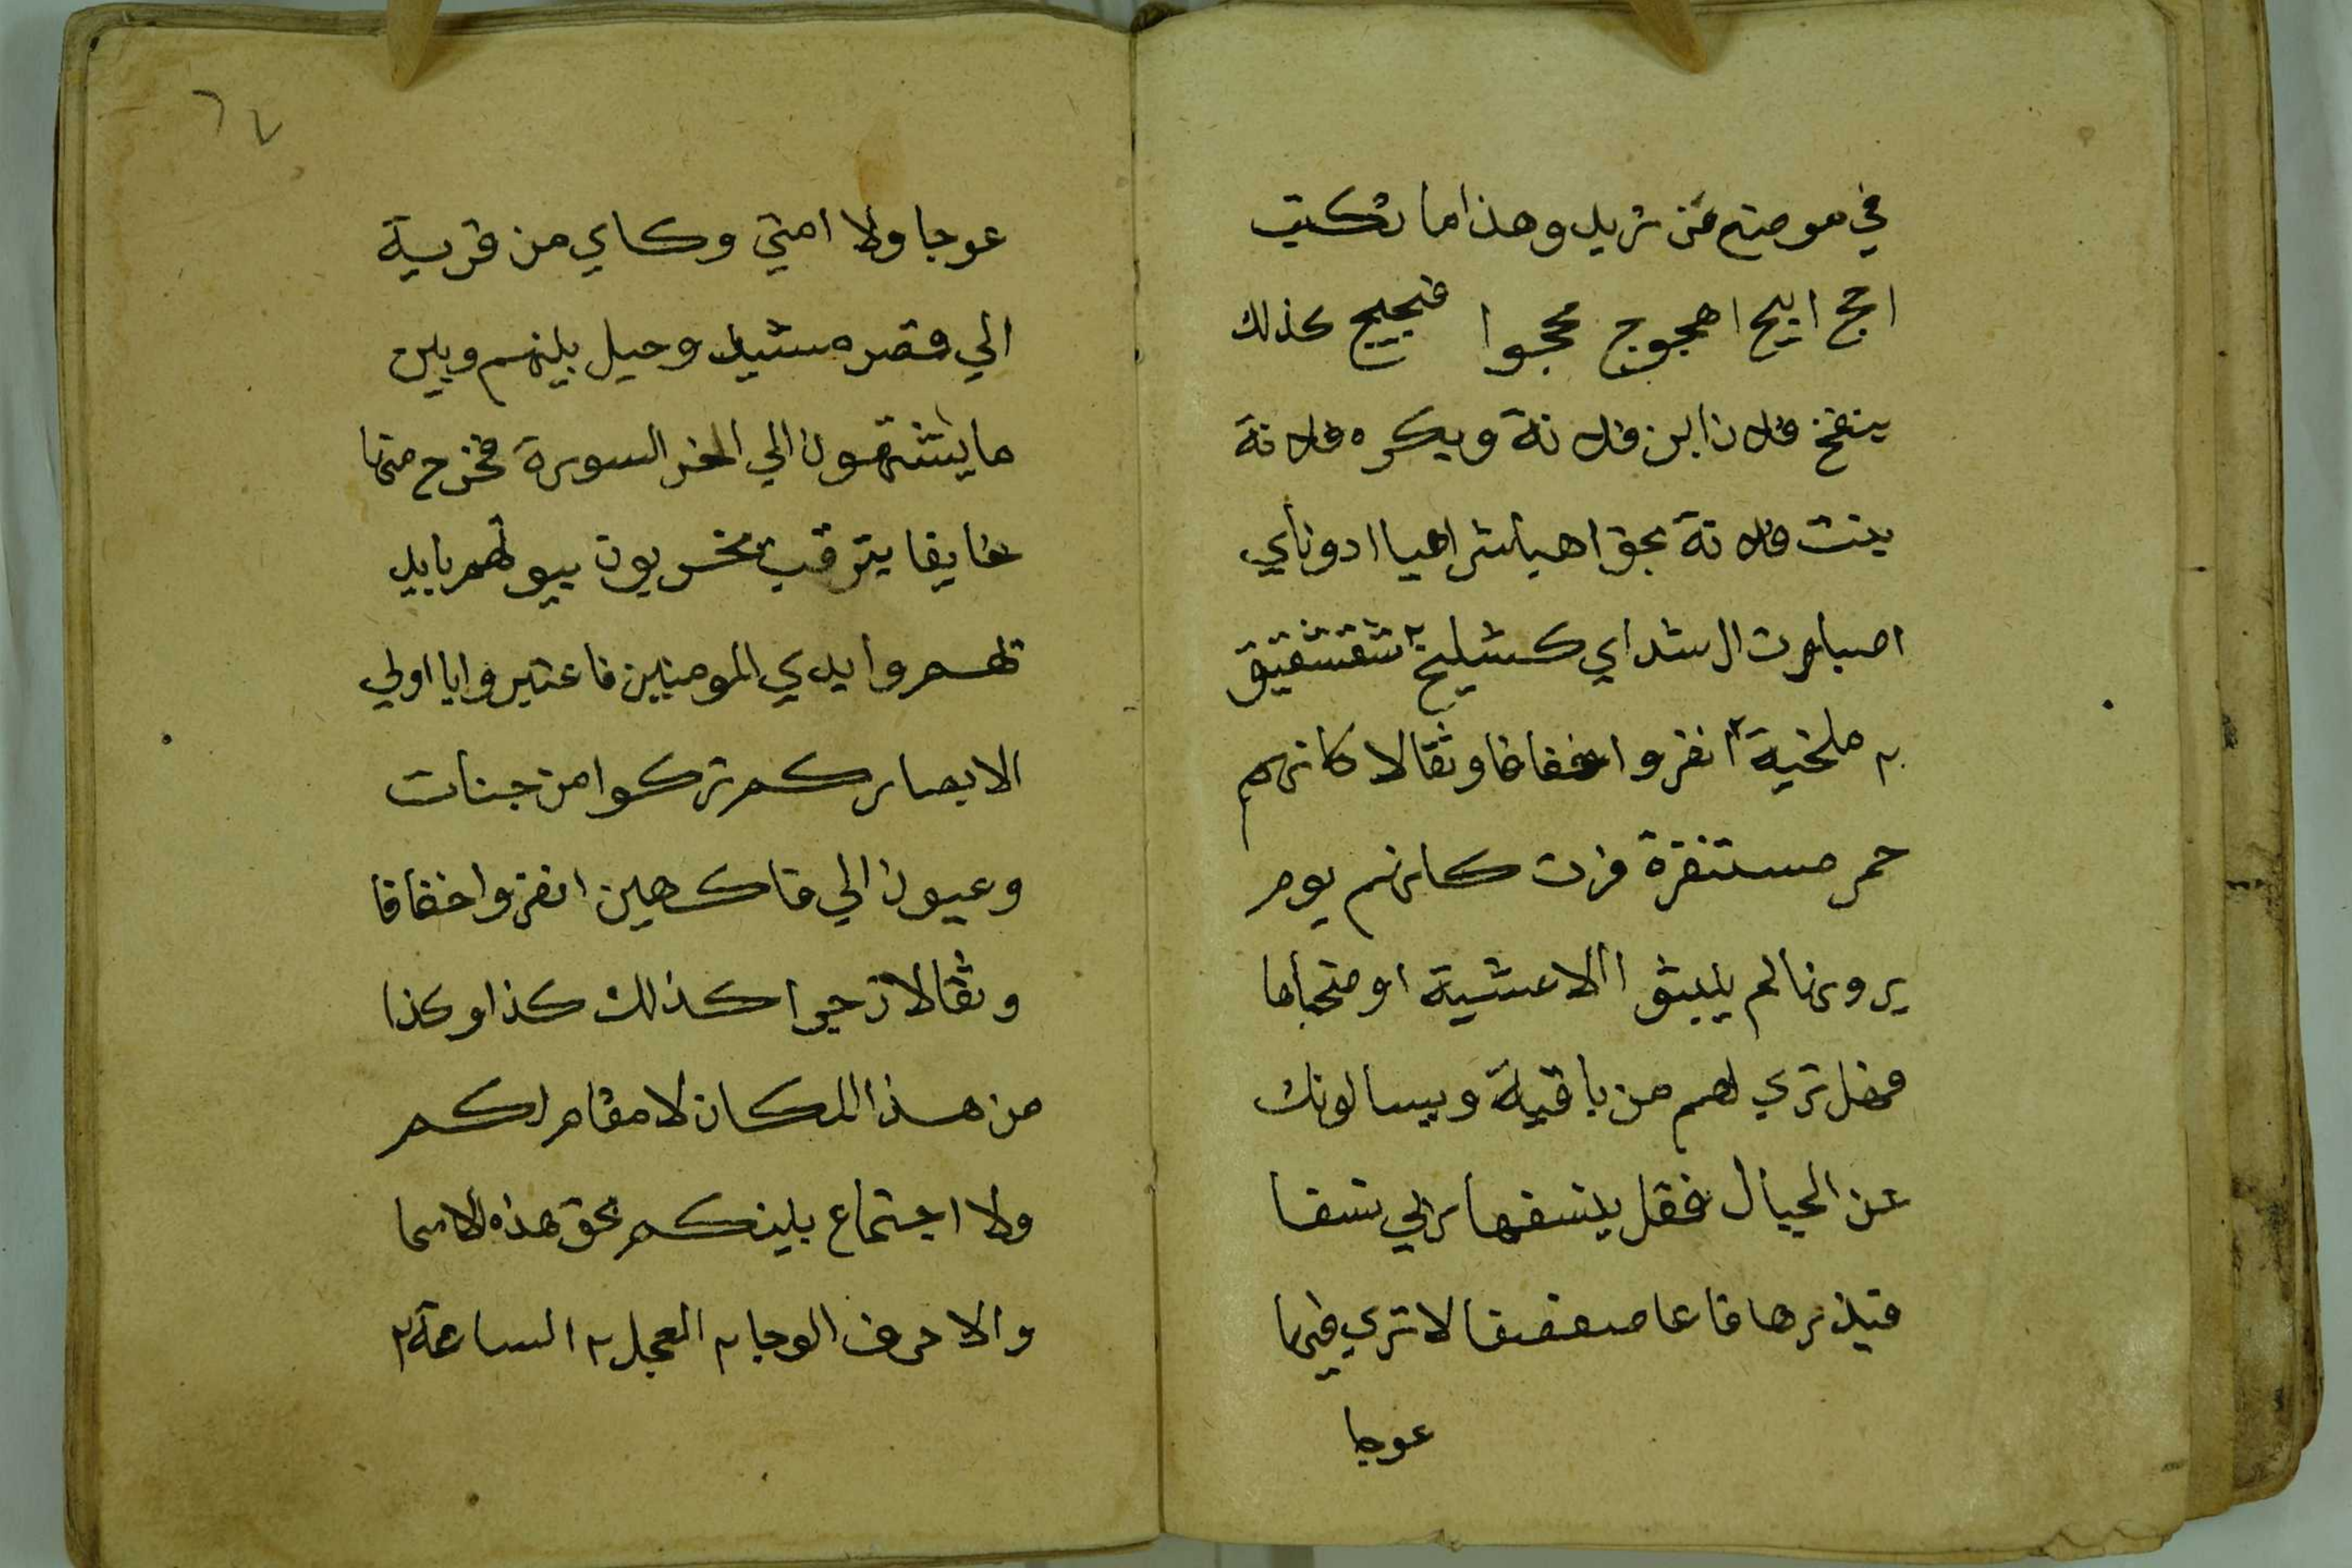 في موضع من تريد وهذا ما تكتب
اجج ايج اهجوج مججوا فجيج كذلك
ينفخ فلان ابن فلانة ويكره فلانة
بنت فلانة بحق اهيا شراهيا ادوناي
اصباوت ال شداي كشليخ ٢ شقشقيق
٢ ملخية ٢ انفروا خفافا وثقالا كانهم
حمر مستنفرة فرت كانهم يوم
يرونها لم يلبثو االاعشية او ضحاها
فهل تري لهم من باقية ويسالونك
عن الجبال فقل ينسفها ربي نسفا
فيذرها قاعا صفصفا لا تري فيها
عوجا
٦٧
عوجا ولا امتي وكاي من قرية
الي وقصر مشيد وحيل بينهم وبين
ما يشتهون الي اخر السورة فخرج منها
خايفا يترقب يخربون بيوتهم بايد
تهم وايدي المومنين فاعتبروا يا اولي
الابصار كم تركوا من جنات
وعيون الي فاكهين انفروا خفافا
وثقالا كذلك كذا وكذا
من هذا المكان لا مقام لكم
ولا اجتماع بينكم بحق هذه الاسما
والاحرف الوحا ٢ العجل ٢ الساعة ٢